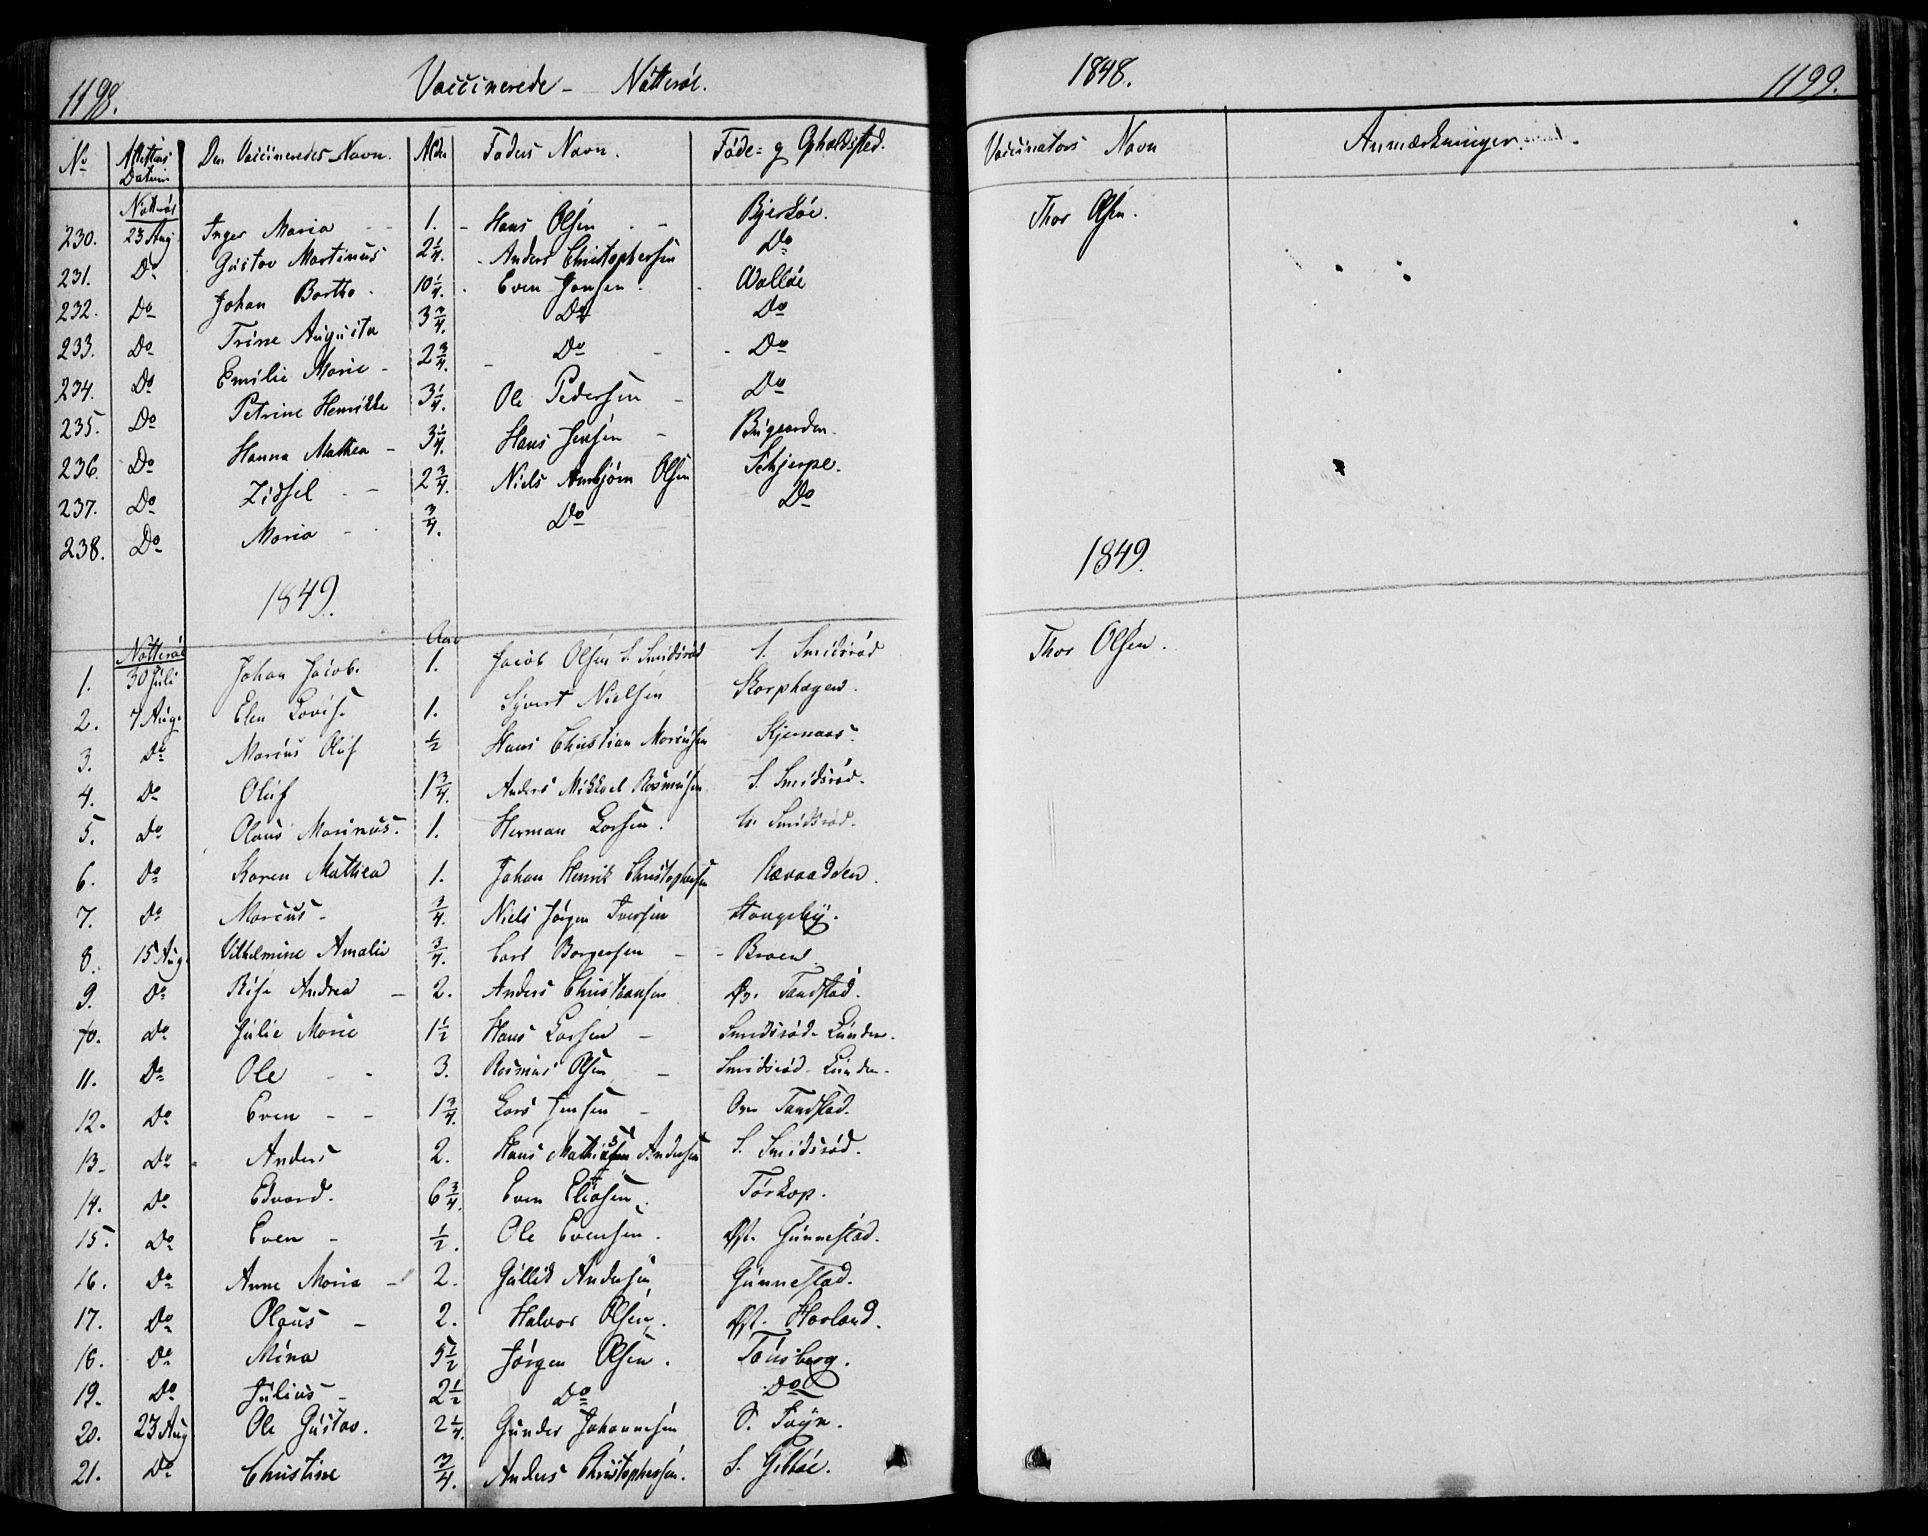 1198. Vaccinerede - Nøtterøe.
No Attestens Datum Den Vaccineredes Navn. Alder Faders Navn. Føde- og Opholdssted.
Nøtterøe
230. 23 Aug Inger Maria - - 1. - Hans Olsen - - Bjerkøe.
231. Do Gustav Martinus 2 1/4. - Anders Christophersen Do
232. Do Johan Bartho - 10 1/4. - Even Jonsen - Walløe
233. Do Trine Augusta 3 3/4. Do Do
234. Do Emilie Marie - 2 3/4. - Do - - Do
235. Do Petrine Henrikke 3 1/4. Ole Pedersen - Do
236. Do Hanna Mathea - 3 1/4. Hans Jensen - Bugaarden.
237. Do Zidsel - - 2 3/4. Niels Arnbjørn Olsen Schjerpe.
238. Do Maria - - 3/4. Do Do
1849.
Nøtterøe Aar
1. 30 Juli Johan Jacob. 1. Jacob Olsen S. Smidsrød S. Smidsrød
2. 7 Aug. Elen Lovise 1. Syvert Nielsen Skorphagen.
3. Do Marius Oluf 1/2 Hans Christian Marcusen Kjernaas
4. Do Oluf 1 3/4. Anders Mikkael Rasmusen S. Smidsrød.
5. Do Olaus Marinus. 1. Herman Larsen. N. Smidsrød.
6. Do Karen Mathea 1. Johan Henrik Christophersen Rævaadden.
7. Do Marcus - 3/4. Niels Jørgen Iversen Haugeby.
8. 15 Aug. Vilhelmine Amalie 3/4. Carl Borgersen - - Broen.
9. Do Rise Andrea - 2. Anders Christiansen Øv. Tandstad.
10. Do Julie Marie 1 1/2 Hans Larsen - Smidsrød-Lunden.
11. Do Ole - - 3. Rasmus Olsen - Smidsrød-Lunden.
12. Do Even - - 1 3/4. Lars Jensen - Øv. Tandstad.
13. Do Anders 2. Hans Mathias Andersen S. Smidsrød.
14. Do Edvard. 6 3/4. Even Eliasen. Torkop.
15. Do Even - 1/2. Ole Evensen. Øst. Gunnestad.
16. Do Anne Maria - 2. Gullik Andersen Gunnestad.
17. Do Olaus - 2. Halvor Olsen. Øst. Havland.
18. Do Mina 5 1/2 Jørgen Olsen. Tønsberg.
19. Do Julius - 2 1/2 Do Do
20. 23 Aug Ole Gustav. 2 1/4. Gunder Johannesen O. Føyn.
21. Do Christine 3/4. Anders Christophersen. S. Gibøe.
1848. 1199.
Vaccinators Navn Anmærkninger.
Thor Olsen.
1849.
Thor Olsen.